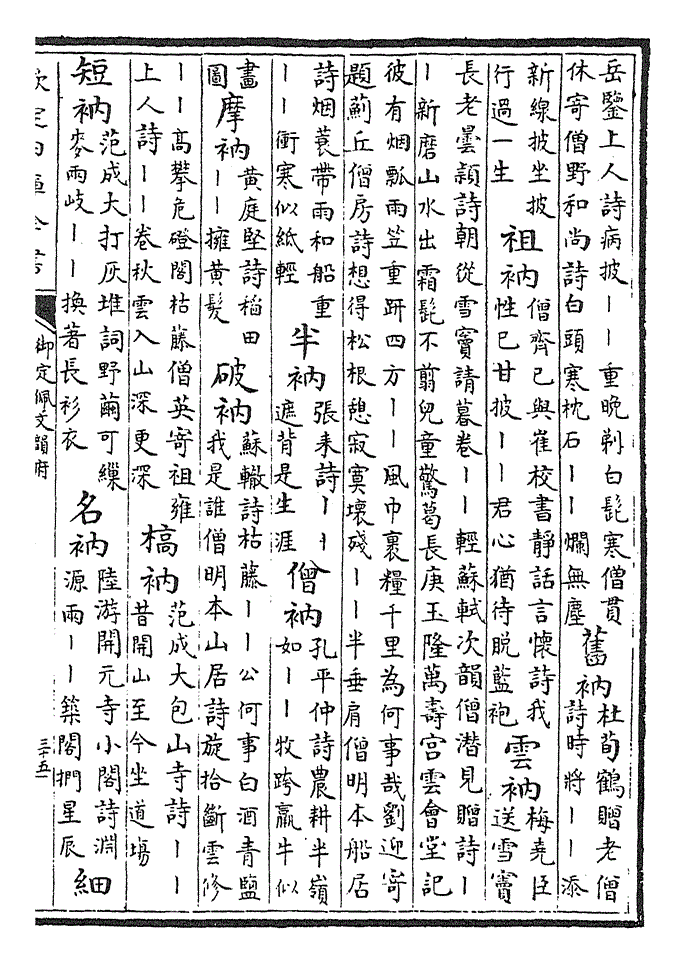 岳鑒上人詩病披丨丨重晚剃白髭寒僧貫
休寄僧野和尚詩白頭寒枕石丨丨爛無塵
舊衲
杜荀鶴贈老僧
詩時將丨丨添
新線披坐披
行過一生
祖衲
僧齊已與崔校書靜話言懷詩我
性已甘披丨丨君心猶待脱藍袍
雲衲
梅堯臣
送雪竇
長老曇頴詩朝從雪竇請暮卷丨丨輕蘇軾次韻僧潜見贈詩丨
丨新磨山水出霜髭不剪兒童驚葛長庚玉隆萬壽宫雲會堂記
彼有烟瓢雨笠重趼四方丨丨風巾裹糧千里為何事哉劉迎寄
題薊丘僧房詩想得松根憩寂寞壞殘丨丨半垂肩僧明本船居
詩烟蓑帶雨和船重
丨丨衝寒似紙輕
半衲
張耒詩丨丨
遮背是生涯
僧衲
孔平仲詩農耕半嶺
如丨丨牧跨羸牛似
畫
圖
摩衲
黄庭堅詩稻田
丨丨擁黄髮
破衲
蘇轍詩枯藤丨丨公何事白酒青鹽
我是誰僧明本山居詩旋拾斷雲修
丨丨高攀危磴閣枯藤僧英寄祖雍
上人詩丨丨卷秋雲入山深更深
槁衲
范成大包山寺詩丨丨
昔開山至今坐道塲
短衲
范成大打灰堆詞野繭可繅
麥兩岐丨丨換著長衫衣
名衲
陸游開元寺小閣詩淵
源雨丨丨築閣捫星辰
細
欽定四庫全書
御定佩文韻府
三十五